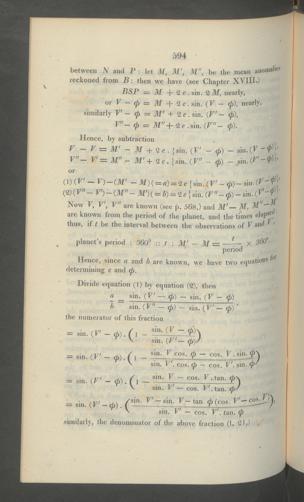 594
between N and P : let M, M′, M″, be the mean anomalies
reckoned from B : then we have (see Chapter XVIII.)
BSP = M + 2 e . sin. 2 M, nearly,
or V − ϕ = M + 2 e . sin. (V − ϕ), nearly,
similarly V′ − ϕ = M′ + 2 e . sin. (V′ − ϕ),
V″ − ϕ = M″ + 2 e . sin. (V″ − ϕ).
Hence, by subtraction
V′ − V = M′ − M + 2 e . {sin. (V′ − ϕ) − sin. (V − ϕ)},
V″ − V′ = M″ − M′ + 2 e . {sin. (V″ − ϕ) − sin. (V′ − ϕ)},
or
(1) (V′ − V) − (M′ − M) (= a) = 2 e {sin. (V′ − ϕ) − sin. (V − ϕ)},
(2) (V″ − V′) − (M″ − M′) (= b) = 2 e {sin. (V″ − ϕ) − sin. (V′ − ϕ)}.
Now V, V′, V″ are known (see p. 568,) and M′ − M, M″ − M′
are known from the period of the planet, and the times elapsed :
thus, if t be the interval between the observations of V and V′,
planet's period : 360° :: t : M′ − M = t / period × 360°.
Hence, since a and b are known, we have two equations for
determining e and ϕ.
Divide equation (1) by equation (2), then
a / b = sin. (V′ − ϕ) − sin. (V − ϕ) / sin. (V″ − ϕ) − sin. (V′ − ϕ),
the numerator of this fraction
= sin. (V′ − ϕ) . (1 − sin. (V − ϕ) / sin. (V′ − ϕ))
= sin. (V′ − ϕ) . (1 − sin. V cos. ϕ − cos. V . sin. ϕ / sin. V′ . cos. ϕ − cos. V′ . sin. ϕ)
= sin. (V′ − ϕ) . (1 − sin. V − cos. V . tan. ϕ / sin. V′ − cos. V′ . tan. ϕ)
= sin. (V′ − ϕ) . (sin. V′ − sin. V − tan. ϕ (cos. V′ − cos. V) / sin. V′ − cos. V′ . tan. ϕ),
similarly, the denominator of the above fraction (l. 21,)